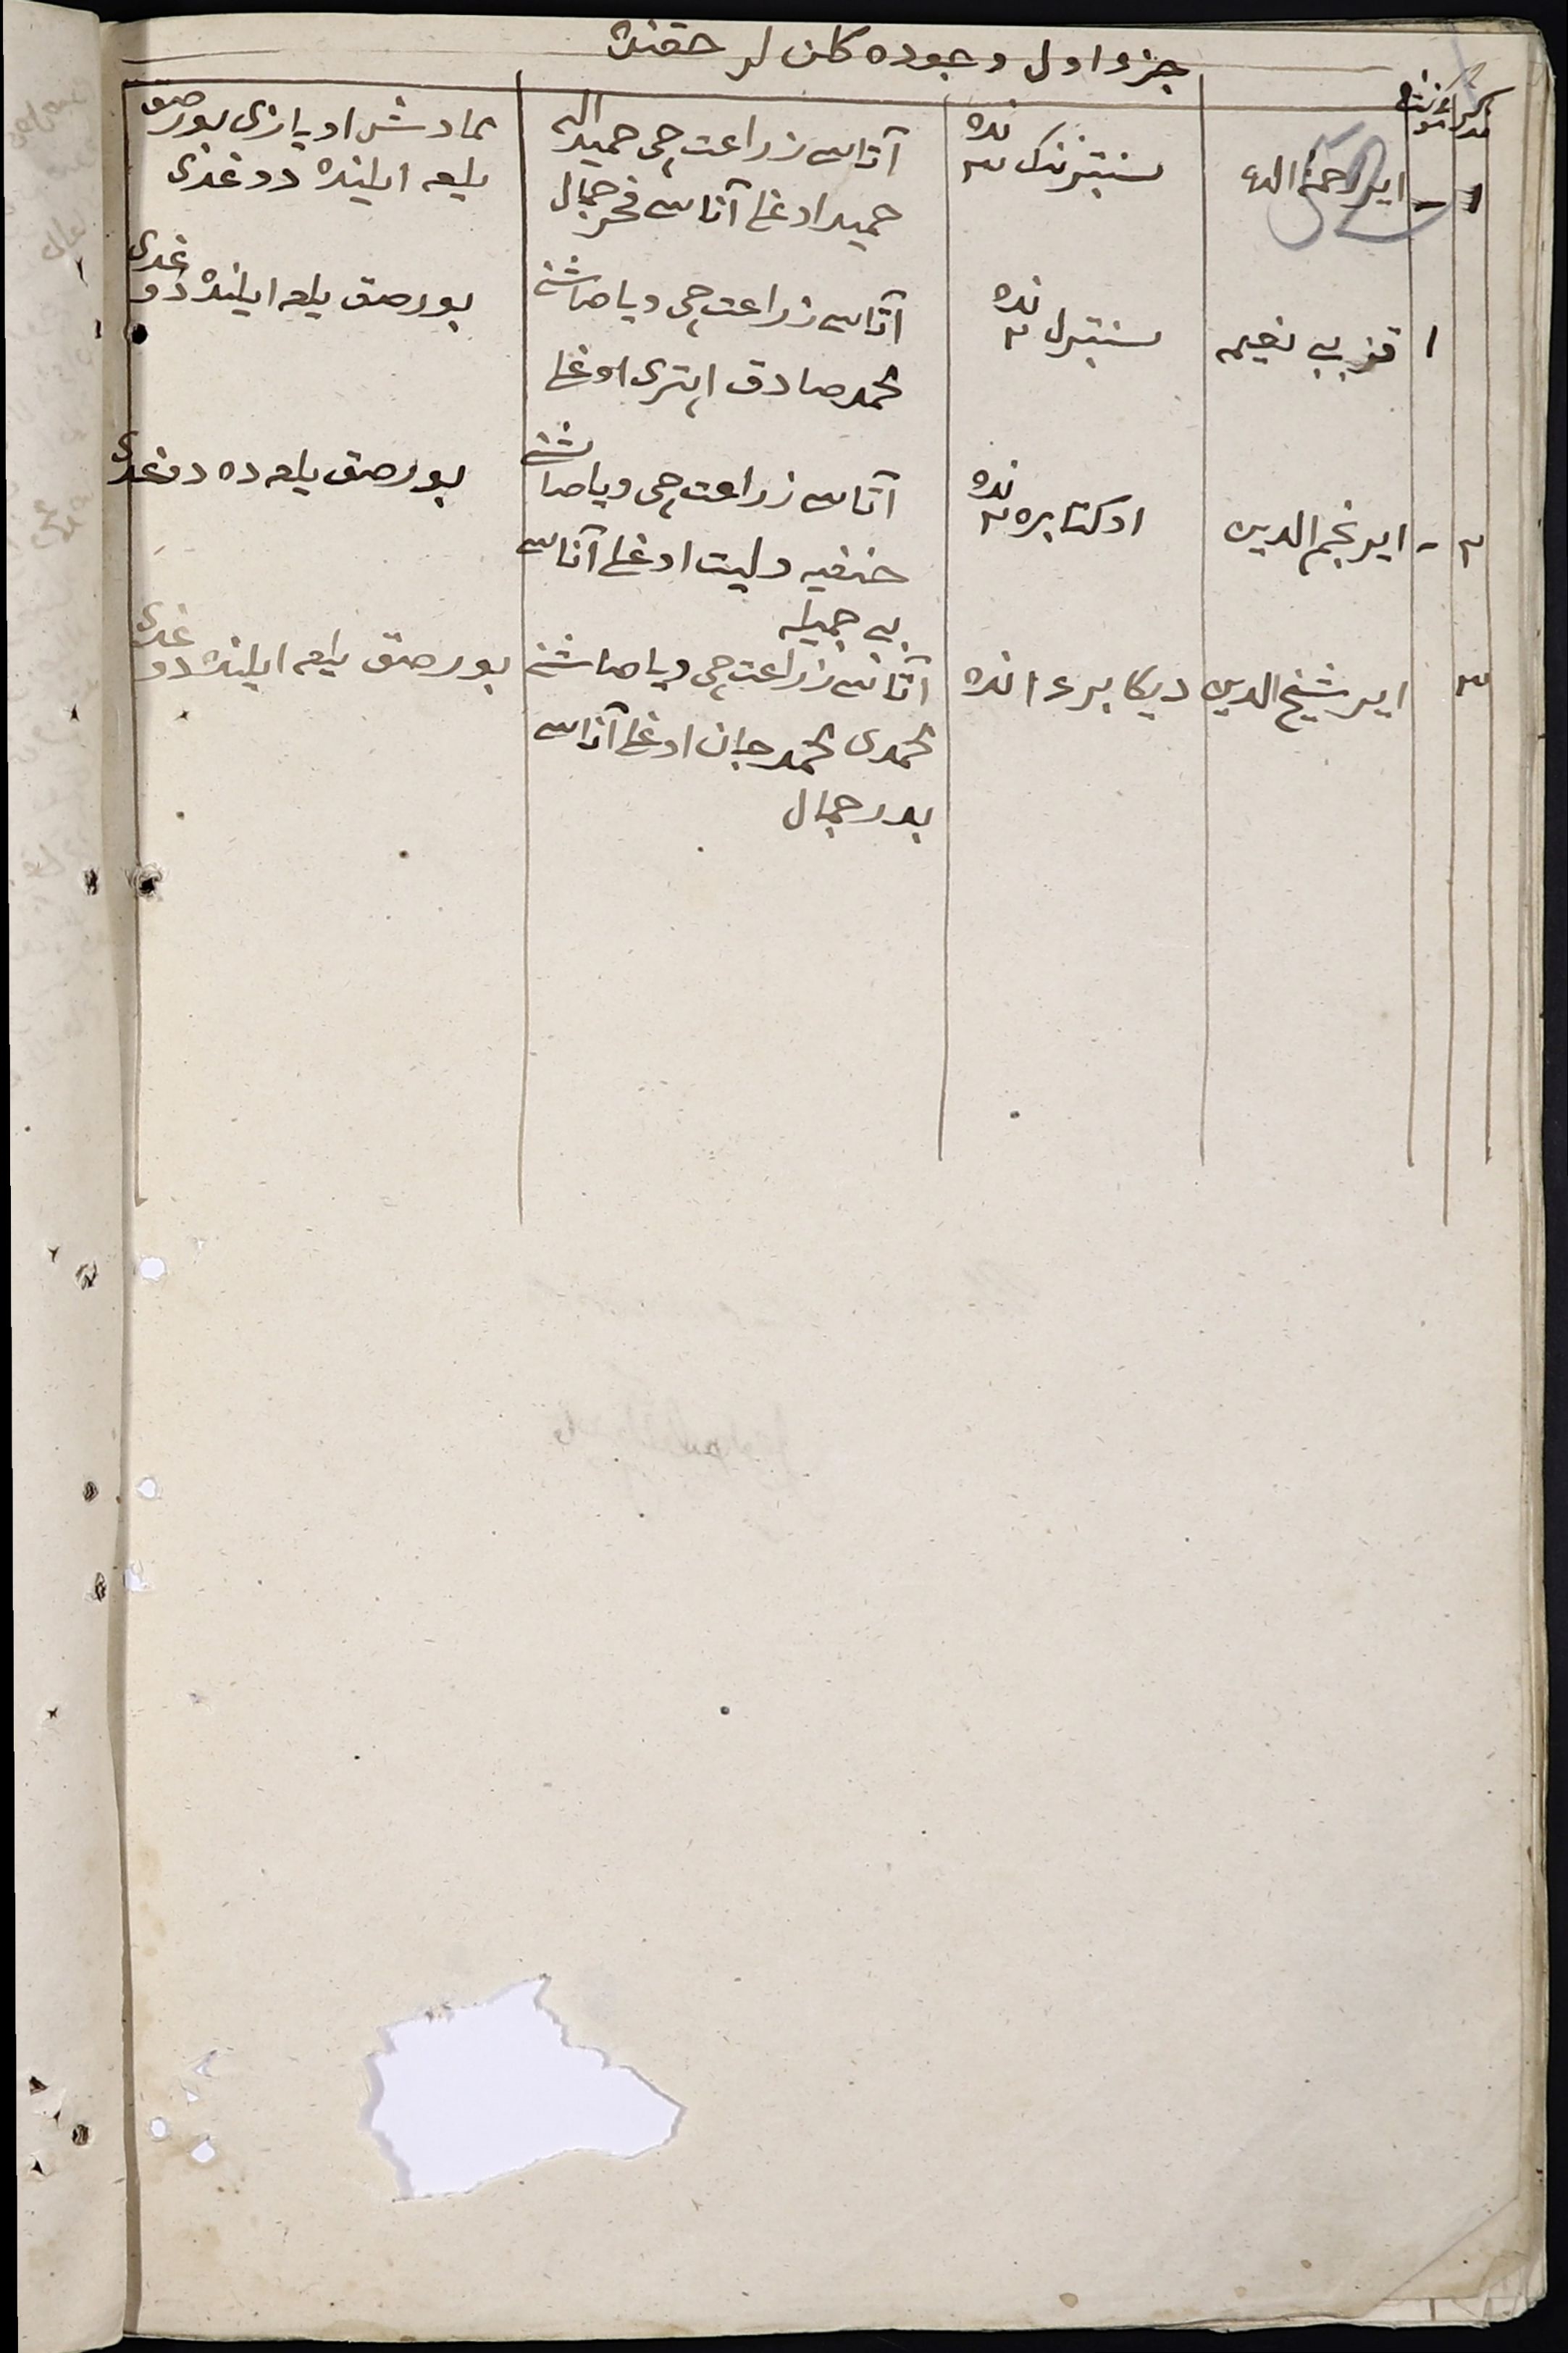 جزؤ اول وجوده كلن لر حقنده
مذكر
مؤنث
١ - اير رحمة الله
سنتبرنك ٣ نده
آتاسی زراعت چی حميد الله
حميد اوغلی آناسی فخر جمال
ممادش اويازی بورصق
يلغه ايلنده دوغدی
١ قز بی نعيمه
سنتبرل ٢ نده
آتاسی زراعت چی وياصاشنه
محمد صادق ايتری اوغلی
بورصق يلغه ايلنده دوغدی
٢ - اير نجم الدين
اوكتابره ٢ نده
آتاسی زراعت چی وياصاشنه
حنفيه وليت اوغلی آناسی
بی جميله
بورصق يلغه ده دوغدی
٣ اير شيخ الدين
ديكابر ١٤ نده
آتاسی زراعت چی وياصاشنه
محمدی محمد جان اوغلی آناسی
بدر جمال
بورصق يلغه ايلنده دوغدی